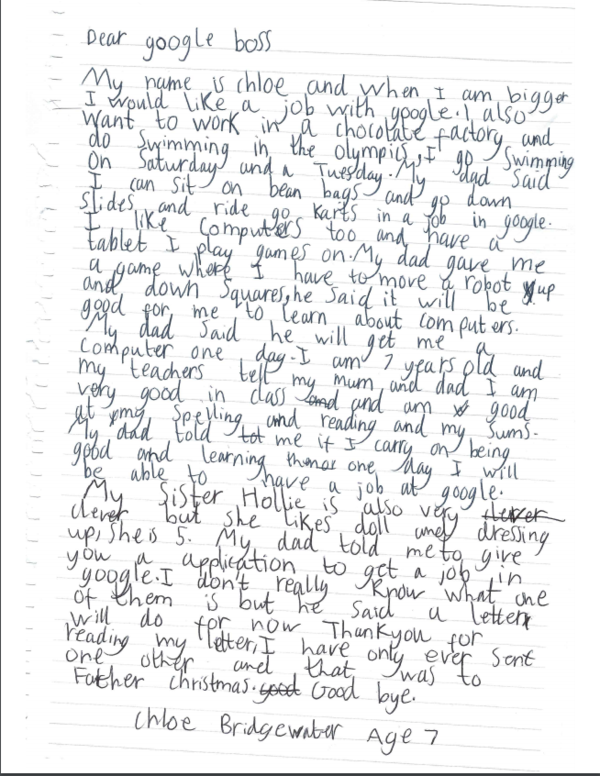 Dear google boss
My name is chloe and when I am bigger
I would like a job with google. I also
want to work in a chocolate factory and
do swimming in the olympics, I go Swimming
on Saturday and a Tuesday. My dad said
I can sit on bean bags and go down
slides and ride go karts in a job in google.
I like computers too and have a
tablet I play games on. My dad gave me
a game where I have to move a robot up
and down squares, he said it will be
good for me to learn about computers.
My dad said he will get me a
computer one day. I am 7 years old and
my teachers tell my mum and dad I am
very good in class and and am good
at my spelling and reading and my sums.
My dad told tot me if I carry on being
good and learning one day I will
be able to have a job at google.
My Sister Hollie is also very clever
clever but she likes doll and dressing
up, she is 5. My dad told me to give
you a application to get a job in
google. I don't really know what one
of them is but he said a letter
will do for now Thankyou for
reading my letter, I have only ever sent
one other and that was to
Father christmas. good Good bye.
Chloe Bridgewater Age 7